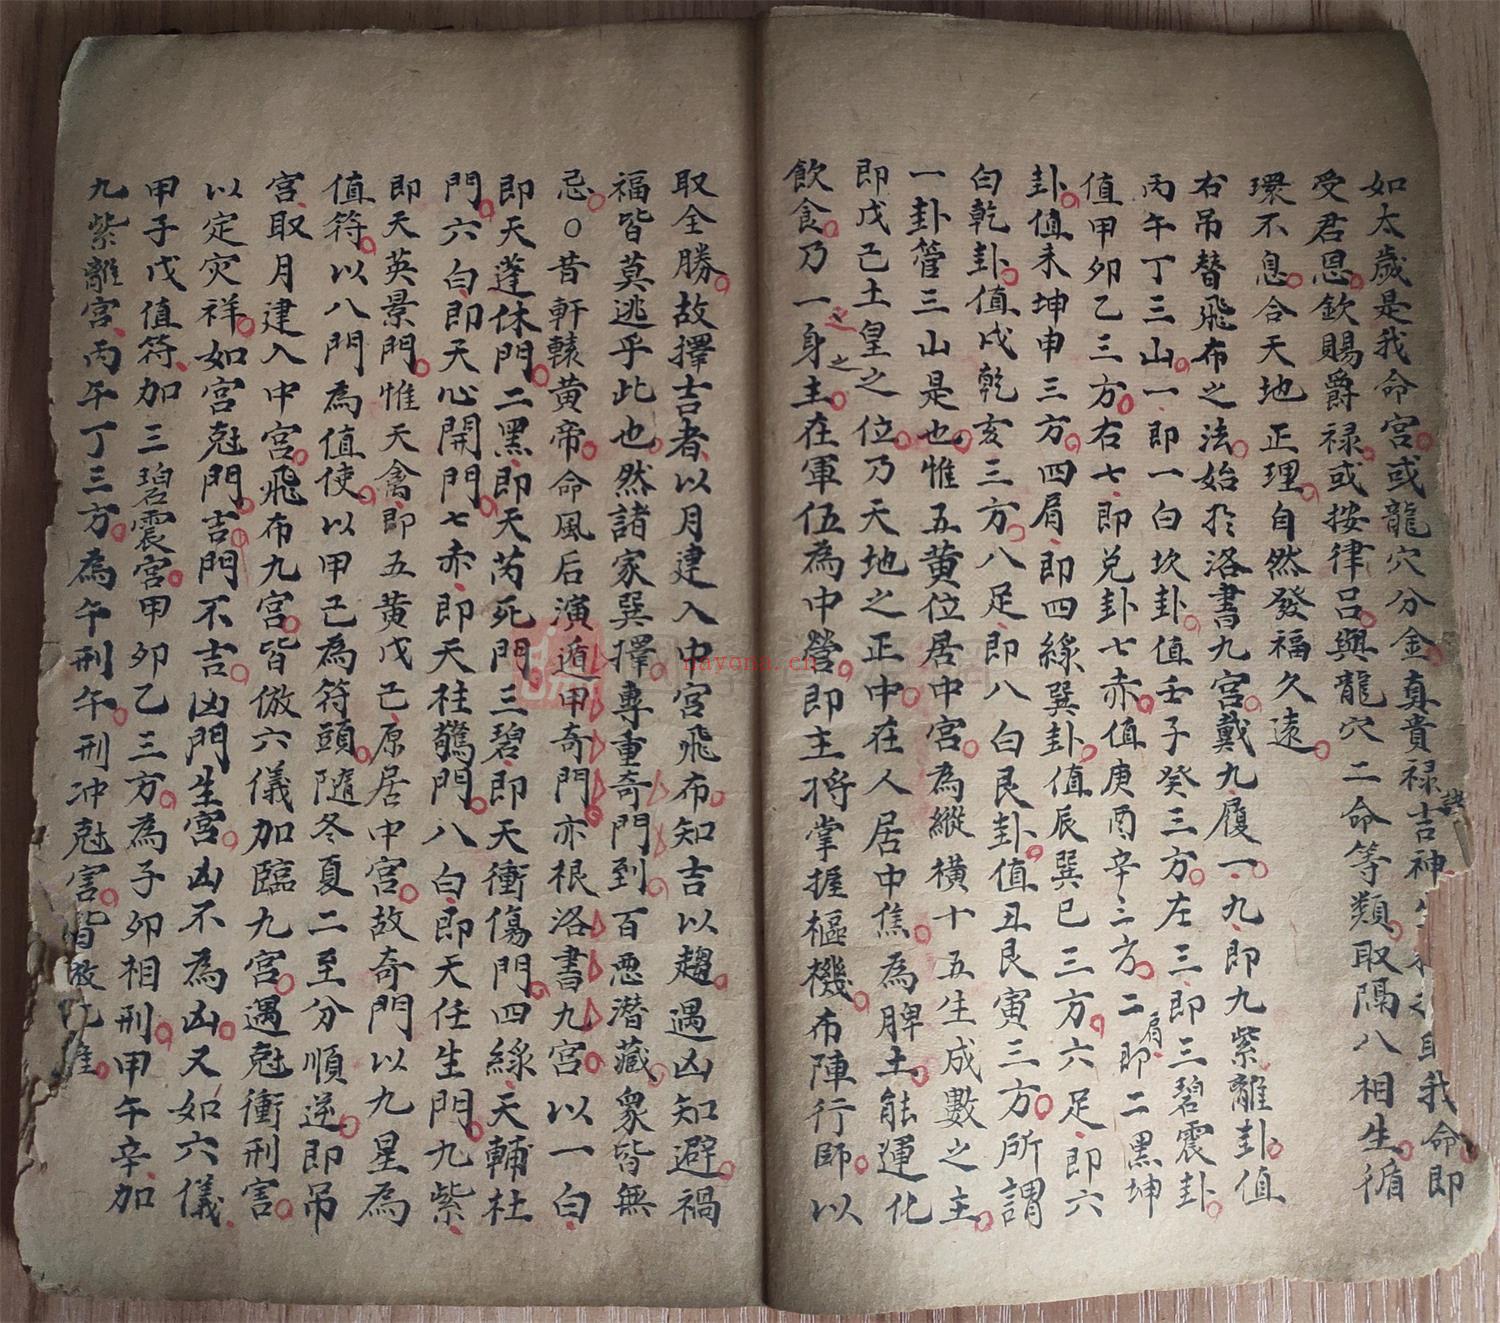 如太歲是我命宮或龍穴分金真貴祿吉神自我命即
受君恩欽賜爵祿或按律呂與龍穴二命等類取隔八相生循
環不息合天地正理自然發福久遠
右吊替飛布之法始於洛書九宮戴九履一九即九紫離卦值
丙午丁三山一即一白坎卦值壬子癸三方左三即三碧震卦
值甲卯乙三方右七即兌卦七赤值庚酉辛三方二肩即二黑坤
卦值未坤申三方四肩即四綠巽卦值辰巽巳三方六足即六
白乾卦值戌乾亥三方八足即八白艮卦值丑艮寅三方所謂
一卦管三山是也惟五黃位居中宮為縱橫十五生成數之主
即戊己土皇之位乃天地之正中在人居中焦為脾土能運化
飲食乃一身之主在軍伍為中營即主將掌握樞機布陣行師以
取全勝故擇吉者以月建入中宮飛布知吉以趨遇凶知避禍
福皆莫逃乎此也然諸家巽擇專重奇門到百惡潛藏眾皆無
忌○昔軒轅黃帝命風后演遁甲奇門亦根洛書九宮以一白
即天蓬休門二黑即天芮死門三碧即天衝傷門四綠天輔杜
門六白即天心開門七赤即天柱驚門八白即天任生門九紫
即天英景門惟天禽即五黃戊己原居中宮故奇門以九星為
值符以八門為值使以甲己為符頭隨冬夏二至分順逆即吊
宮取月建入中宮飛布九宮皆倣六儀加臨九宮遇尅衝刑害
以定灾祥如宮尅門吉門不吉凶門生宮凶不為凶又如六儀
甲子戊值符加三碧震宮甲卯乙三方為子卯相刑甲午辛加
九紫離宮丙午丁三方為午刑午刑冲尅害皆
nayona.cn